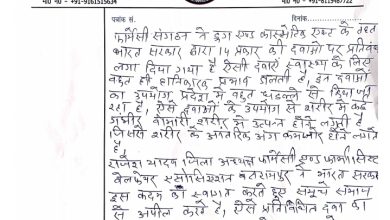 मो० नं० - +91-9161515634 मो० नं० - +91-8115487722
पत्रांक सं. दिनांक
फार्मेसी संगठन ने ड्रग एण्ड कास्मेटिक एक्ट के तहत
भारत सरकार द्वारा 14 प्रकार की दवाओं पर प्रतिबंध
लगा दिया गया है ऐसी दवाएं स्वास्थ्य के लिए
बहुत ही हानिकारक प्रभाव डालती है, इन दवाओं
का उपयोग प्रदेश में बहुत धड़ल्ले से किया जा
रहा है, ऐसे दवाओं के उपयोग से शरीर में कई
गंभीर बीमारी शरीर में उत्पन्न होने लगती है
जिससे शरीर के आंतरिक अंग कमजोर होने लगते
है
राजेश यादव जिला अध्यक्ष फार्मेसी एण्ड फार्मासिस्ट
वेलफेयर एसोसिएशन बलरामपुर ने भारत सरकार
इस कदम का स्वागत करते हुए समूचे समाज
से अपील करते हैं, ऐसे प्रतिबंधित दवा का